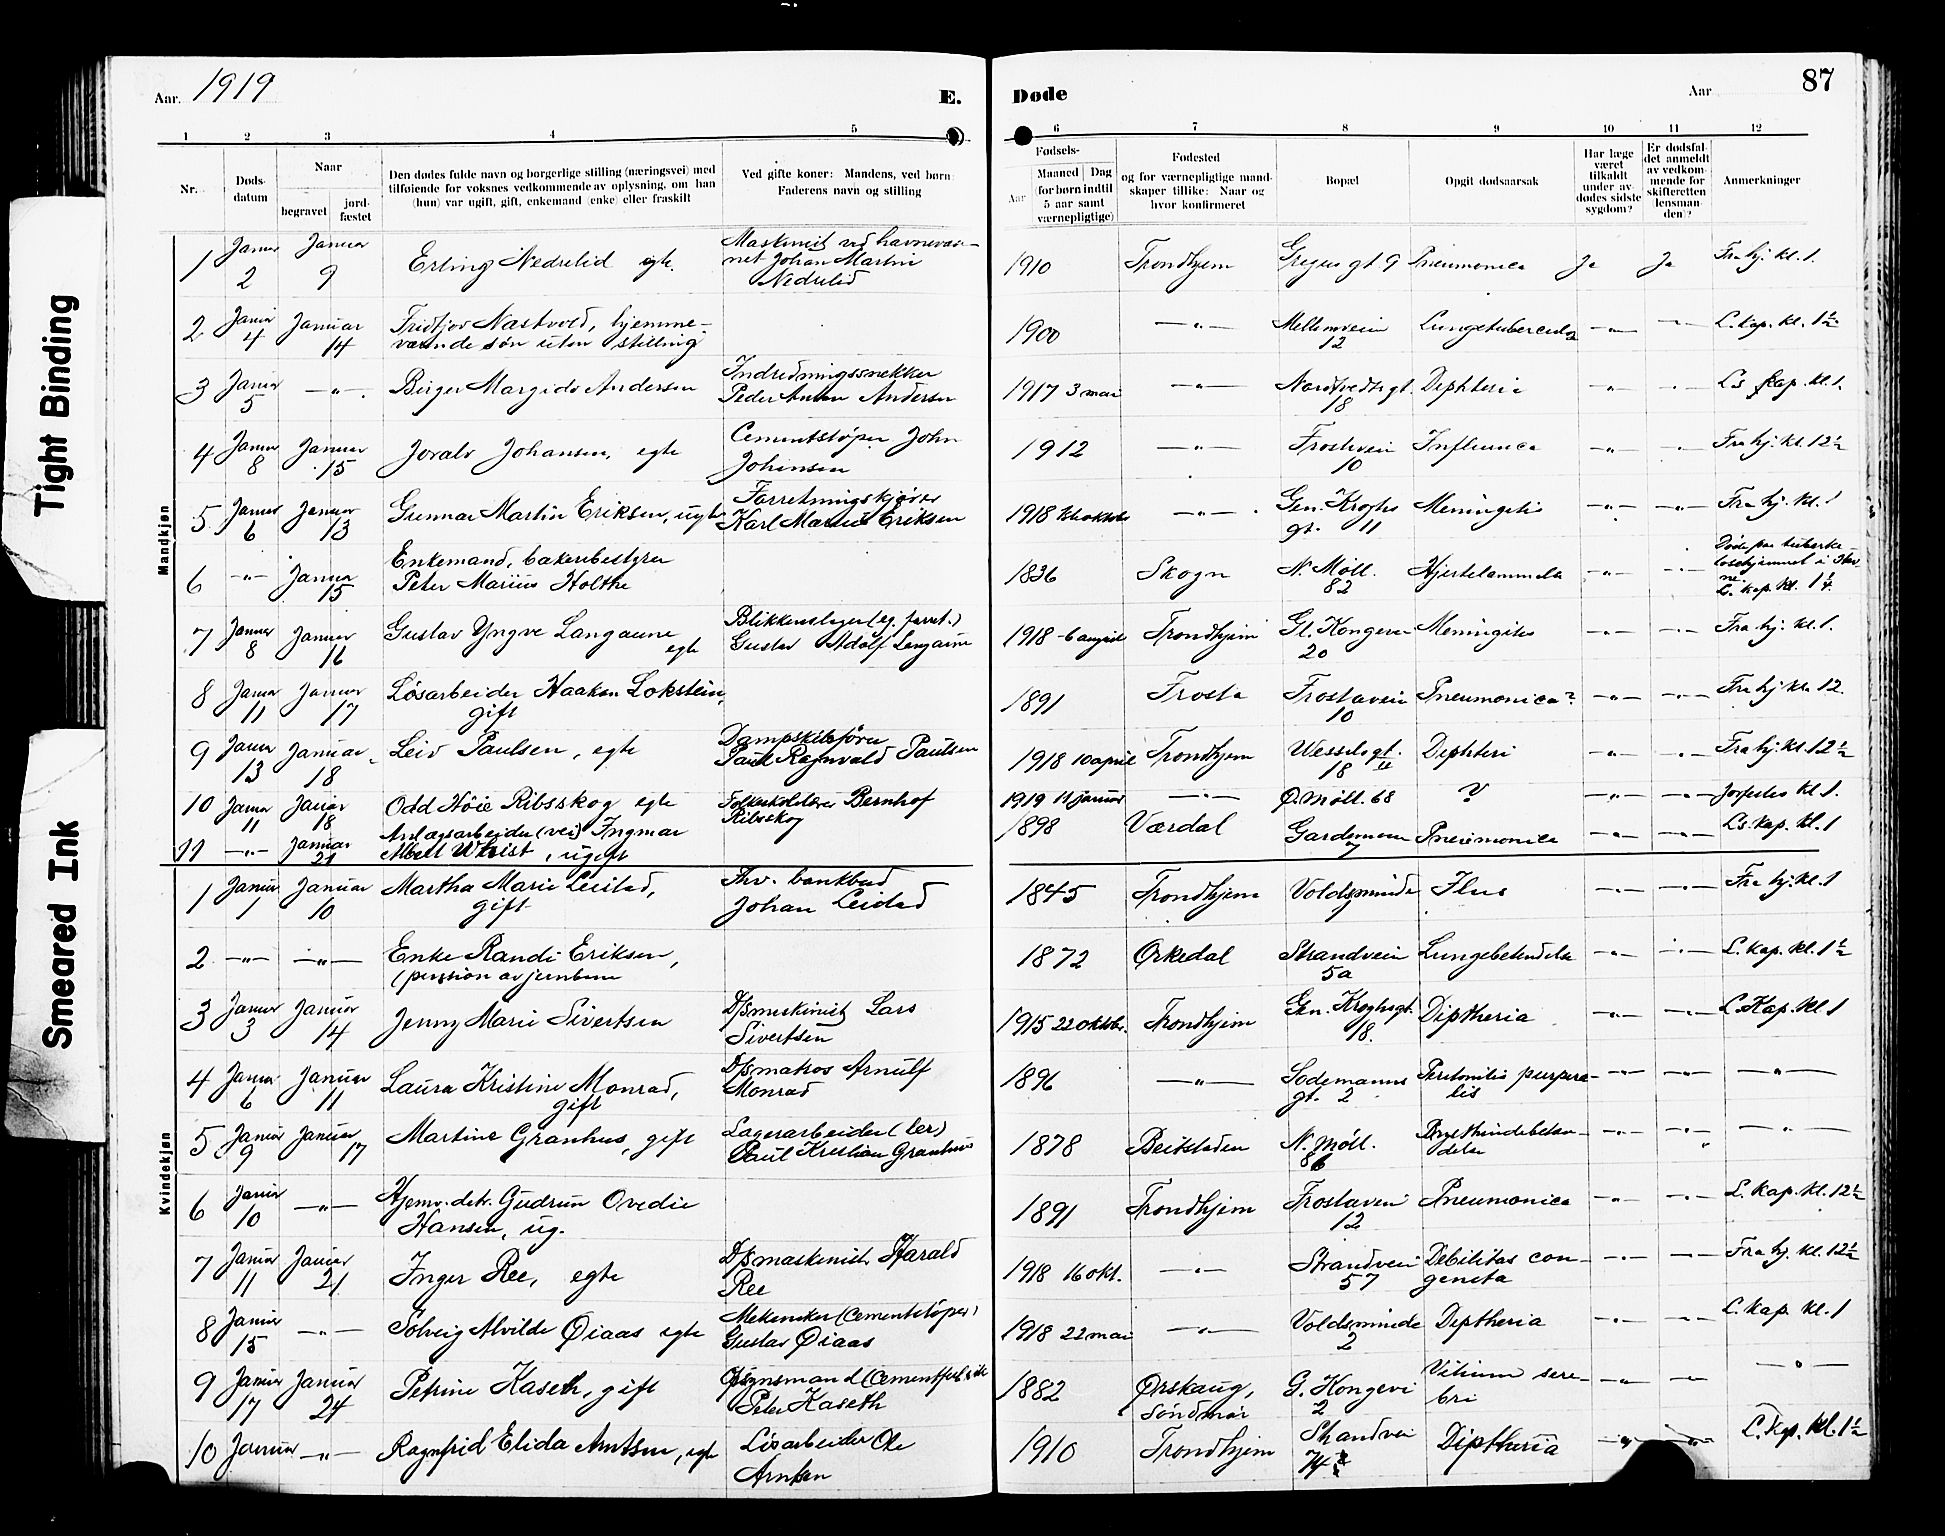 Tight Binding
Smeared Ink
Aar. 1919
E. Døde
Aar 87
1 2 3 4 5 6 7 8 9 10 11 12
Nr.
Døds-
datum
Naar
begravet
jord-
fæstet
Den dødes fulde navn og borgerlige stilling (næringsvei) med
tilføiende for voksnes vedkommende av oplysning, om han
(hun) var ugift, gift, enkemand (enke) eller fraskilt
Ved gifte koner: Mandens, ved børn:
Faderens navn og stilling
Fødsels-
Aar
Maaned Dag
(for børn indtil
5 aar samt
værnepligtige)
Fødested
og for værnepligtige mand-
skaper tillike: Naar og
hvor konfirmeret
Bopæl
Opgit dødsaarsak
Har læge
været
tilkaldt
under av-
dødes sidste
sygdom?
Er dødsfal-
det anmeldt
av vedkom-
mende for
skifteretten
(lensman-
den)?
Anmerkninger
Mandkjøn
1 Januar 2 Januar 9 Erling Nedrelid egte. Maskinist ved havnevæse-
net Johan Martin
Nedrelid 1910 Trondhjem Gregus gt 9 Pneumonica Ja Ja Fra hj. kl. 1.
2 Januar 4 Januar 14 Fridtjov Nastvold, hjemme-
værende søn uten stilling 1900 —"— Mellemveien
12 Lungetuberculose —"— —"— L. kap. kl. 1½
3 Januar 5 —"— Birger Margido Andersen Indredningssnekker
Peder Anton Andersen 1917 3 mai —"— Nordtvedtsgt.
18 Diphteria —"— —"— Ls kap. kl. 1.
4 Januar 8 Januar 15 Joralv Johansen, egte Cementstøper John
Johansen 1912 —"— Frostavein
10 Influenca —"— —"— Fra hj. kl. 12½
5 Januar 6 Januar 13 Gunnar Martin Eriksen, ugte Forretningskjører
Karl Marius Eriksen 1918 —"— Gen. Kroghs
gt. 11 Meningitis —"— —"— Fra hj. kl. 1
6 —"— Januar 15 Enkemand, bakeribestyrer
Peter Marius Holthe 1836 Skogn N. Møll.
82 Hjertelammelse —"— —"— Døde paa tuberku-
losehjemmet i
L. kap. kl. 1¼
7 Januar 8 Januar 16 Gustav Yngve Langaune
egte Blikkenslager (eg. forret.)
Gustav Adolf Langaune 1918 6 april Trondhjem Gl. Kongevei
20 Meningitis —"— —"— Fra hj. kl. 1.
8 Januar 11 Januar 17 Løsarbeider Haakon Lokstein,
gift 1891 Frosta Frostavein
10 Pneumonica? —"— —"— Fra hj kl. 12.
9 Januar 13 Januar 18 Leiv Paulsen, egte Dampskibsfører
Paul Ragnvald Paulsen 1918 10 april Trondhjem Wesselsgt.
18 II Diphteri —"— —"— Fra hj. kl. 12½
10 Januar 11 Januar 18 Odd Høie Ribsskog egte Folkeskolelærer Bernhof
Ribsskog 1919 11 januar —"— Ø. Møll. 68 ? —"— —"— Jorfestes kl. 1.
11 —"— Januar 21 Anlægsarbeider (vei) Ingmar
Albert Wheist, ugift 1898 Værdal Gardemoen
7 Pneumonica —"— —"— Ls. kap. kl. 1
Kvindekjøn
1 Januar 1 Januar 10 Martha Marie Leistad,
gift Fhv. bankbud
Johan Leistad 1845 Trondhjem Voldsminde Ilus —"— —"— Fra hj. kl. 1
2 —"— —"— Enke Randi Eriksen,
(pension av jernbane 1872 Orkedal Strandvein
5a Lungebetendelse —"— —"— L. kap. kl. 1½
3 Januar 3 Januar 14 Jenny Marie Sivertsen D/smaskinist Lars
Sivertsen 1915 22 oktober Trondhjem Gen. Kroghsgt.
18. Diptheria —"— —"— L. Kap. kl 1
4 Januar 6 Januar 11 Laura Kristine Monrad,
gift D/smatros Arnulf
Monrad 1896 —"— Sodemanns
gt. 2 Peritonitis puerpera-
lis —"— —"— —"—
5 Januar 9 Januar 17 Martine Granhus, gift Lagerarbeider (ler)
Paul Kristian Granhus 1878 Beitstaden N. Møll.
86 Brysthindebeten-
delse —"— —"— —"—
6 Januar 10 —"— Hjemv. dtr. Gudrun Ovedie
Hansen, ug. 1891 Trondhjem Frostavein
12 Pneumonica —"— —"— L. kap. kl. 12½
7 Januar 11 Januar 21 Inger Ree, egte D/smaskinist Harald
Ree 1918 16 okt. —"— Strandvein
57 Debilitas con-
genita —"— —"— Fra hj. kl. 12½
8 Januar 15 —"— Solveig Alvilde Øiaas egte Mekaniker (Cementstøper)
Gustav Øiaas 1918 22 mai —"— Voldsminde
2 Diptheria —"— —"— L. kap. kl. 1
9 Januar 17 Januar 24 Petrine Kaseth, gift Opsynsmand
Peter Kaseth 1882 Ørskaug,
Søndmør G. Kongevei
2 Vitium sere-
bri —"— —"— —"—
10 Januar —"— Ragnfrid Elida Arntsen, egte Løsarbeider Ole
Arntsen 1910 Trondhjem Strandvei
74 Diptheria —"— —"— L. kap. kl. 1½